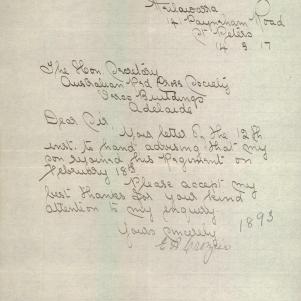 14 Payneham Road
St Peters
14 3 17
The Hon Secretary
Australian Red Cross Society
Buildings
Adelaide
Dear Sir
Your letter of the 12th
inst. to hand advising that my
son rejoined his Regiment on
February 18th
Please accept my
best thanks for your kind
attention to my enquiry
Yours sincerely
1893